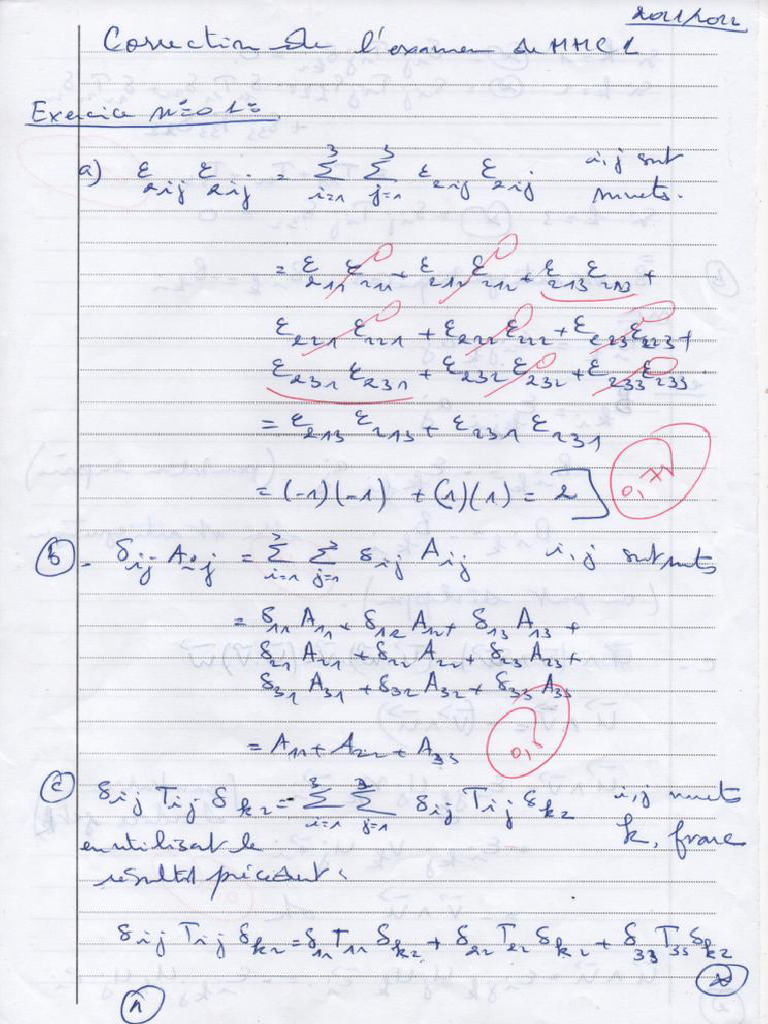 2021/2022
Correction de l'examen de MMC 1
Exercice n=01=
a) ε_2ij ε_2ij = Σ_{i=1}^3 Σ_{j=1}^3 ε_2ij ε_2ij i,j sont
muets.
= ε_211 ε_211 + ε_212 ε_212 + ε_213 ε_213 +
ε_221 ε_221 + ε_222 ε_222 + ε_223 ε_223 +
ε_231 ε_231 + ε_232 ε_232 + ε_233 ε_233
= ε_213 ε_213 + ε_231 ε_231
= (-1)(-1) + (1)(1) = 2
b - δ_ij A_ij = Σ_{i=1}^3 Σ_{j=1}^3 δ_ij A_ij i,j sont muets
= δ_11 A_11 + δ_12 A_12 + δ_13 A_13 +
δ_21 A_21 + δ_22 A_22 + δ_23 A_23 +
δ_31 A_31 + δ_32 A_32 + δ_33 A_33
= A_11 + A_22 + A_33
c δ_ij T_ij δ_k2 = Σ_{i=1}^3 Σ_{j=1}^3 δ_ij T_ij δ_k2 i,j muets
k, franc
en utilisant le
résultat précédent :
δ_ij T_ij δ_k2 = δ_11 T_11 δ_k2 + δ_22 T_22 δ_k2 + δ_33 T_33 δ_k2
1